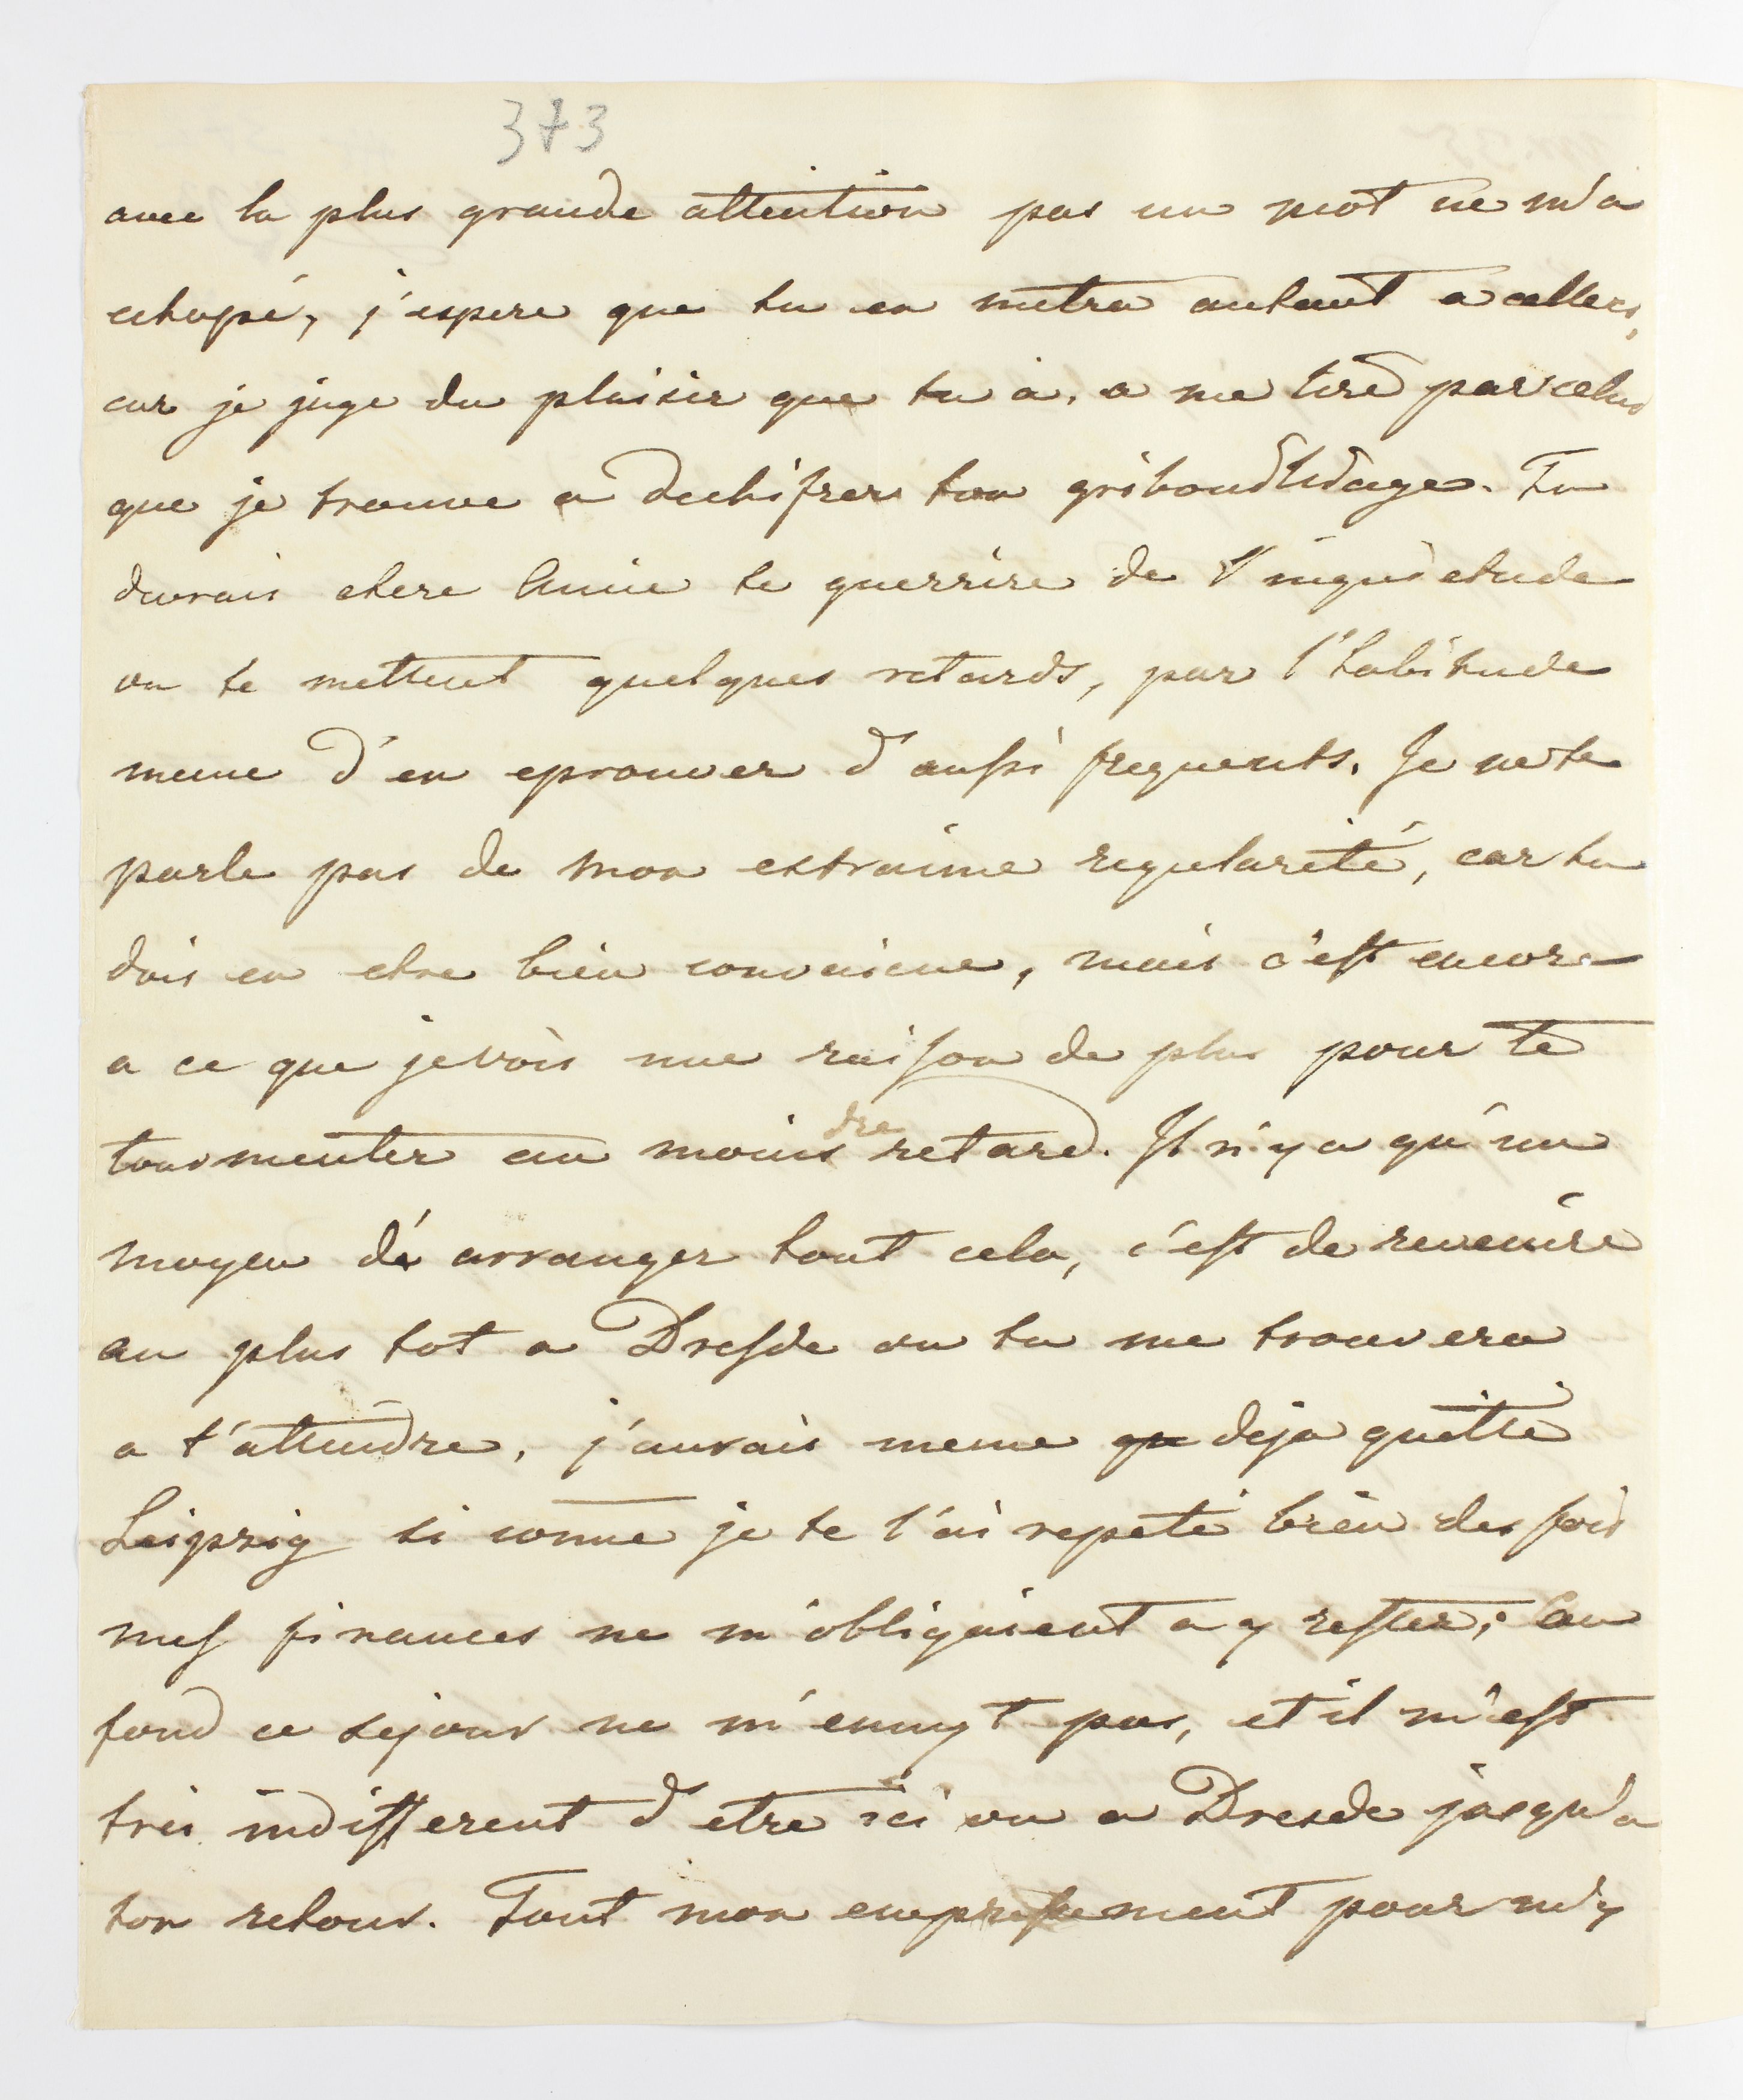 373
avec la plus grande attention pas un mot ne m'a
echapé, j'espere que tu en mettra autant a celleci,
car je juge du plaisir que tu a, a me lire par celui
que je trouve a dechifrer ton griboudlidage. Tu
devrais chere Amie te guerrire de l'inquietude
ou te mettent quelques retards, par l'habitude
meme d'en eprouver d'aussi frequents. Je ne te
parle pas de mon extraime regularité, car tu
dois en etre bien convaincue, mais c'est encore
a ce que je vois une raison de plus pour te
tourmenter au moindre retard. Il n'y a qu'un
moyen d'arranger tout cela, c'est de revenire
au plus tot a Dresde ou tu me trouvera
a t'attendre, j'aurais meme deja quitté
Leipzig si comme je te l'ai repeté bien des fois
mes finances ne m'obligaient a y rester; Au
fond ce sejour ne m'ennuyt pas, et il m'est
tres indifferent d'etre ici ou a Dresde jusqu'a
ton retour. Tout mon empressement pour m'y